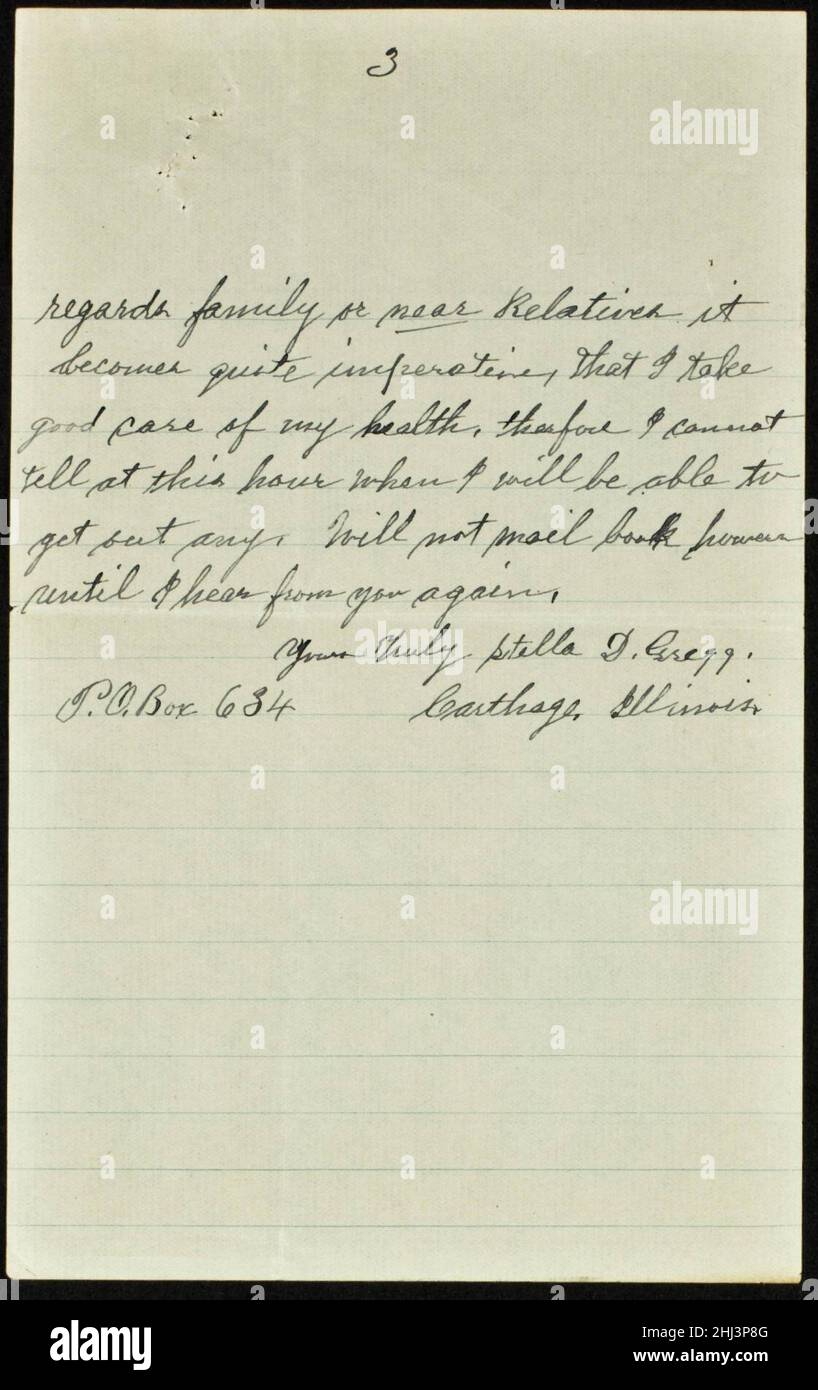 3
regards family or near Relatives it
becomes quite imperative, that I take
good care of my health, therfore I cannot
tell at this hour when I will be able to
get out any. Will not mail book however
until I hear from you again.
Yours Truly Stella D. Gregg.
P.O. Box 634 Carthage, Illinois.
alamy
alamy
alamy
Image ID: 2HJ3P8G
www.alamy.com